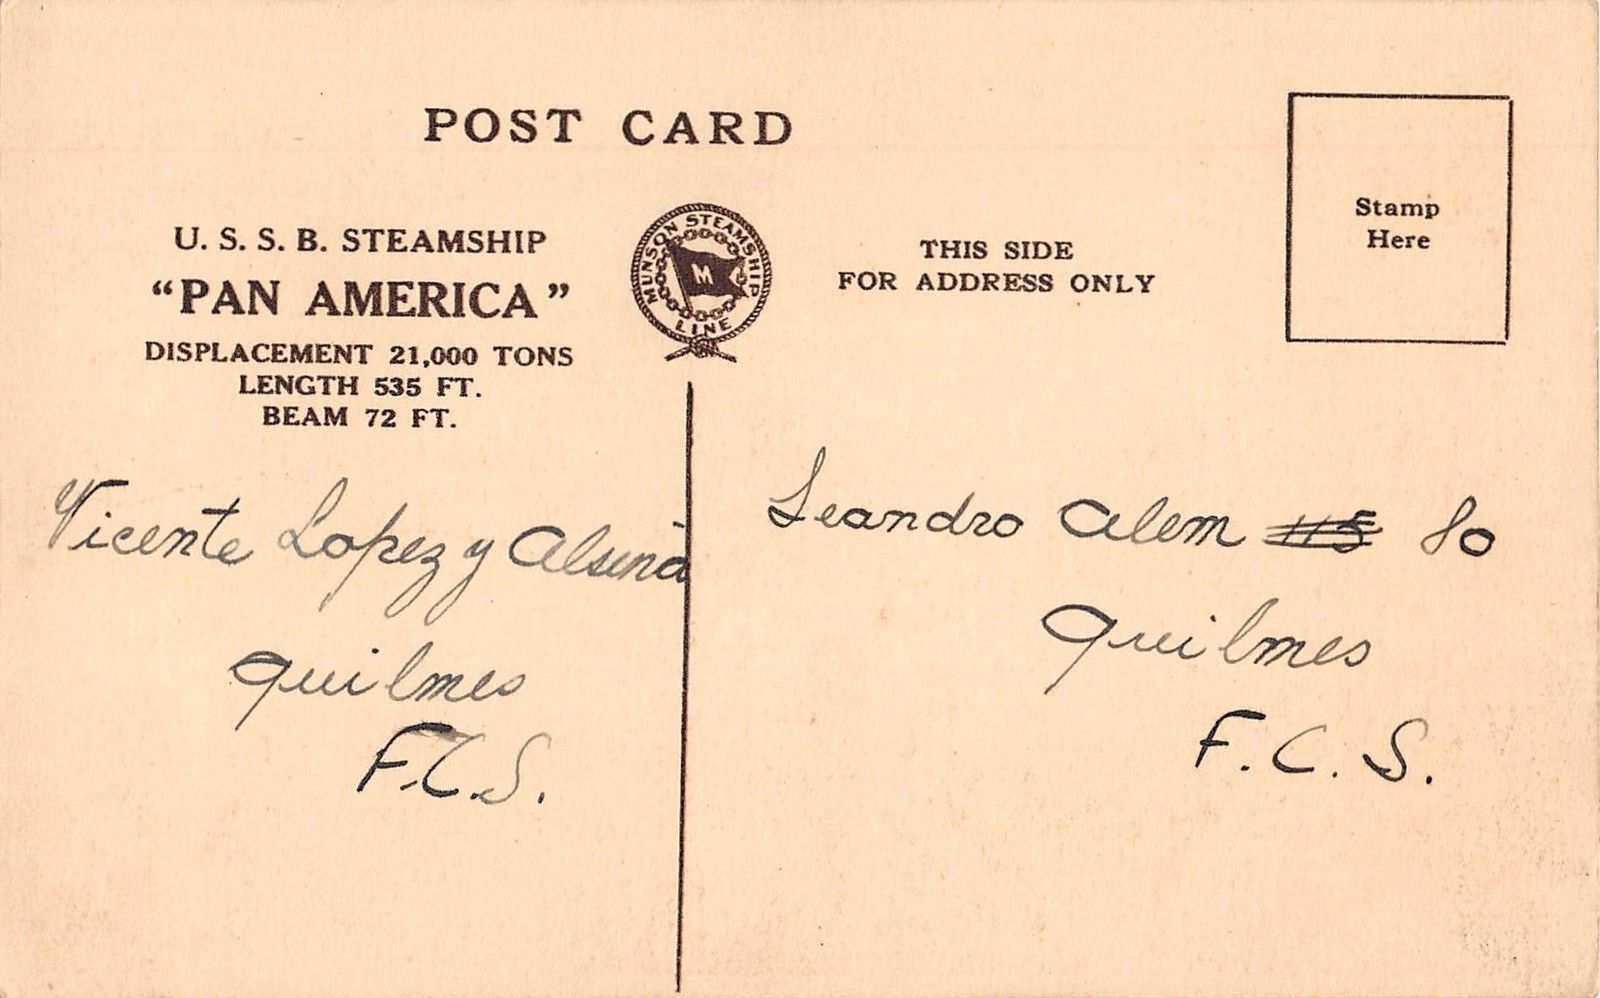 POST CARD
U. S. S. B. STEAMSHIP
"PAN AMERICA"
DISPLACEMENT 21,000 TONS
LENGTH 535 FT.
BEAM 72 FT.
MUNSON STEAMSHIP
LINE
M
THIS SIDE
FOR ADDRESS ONLY
Stamp
Here
Vicente Lopez y Alsina
Quilmes
F.C.S.
Leandro Alem 115 80
Quilmes
F. C. S.